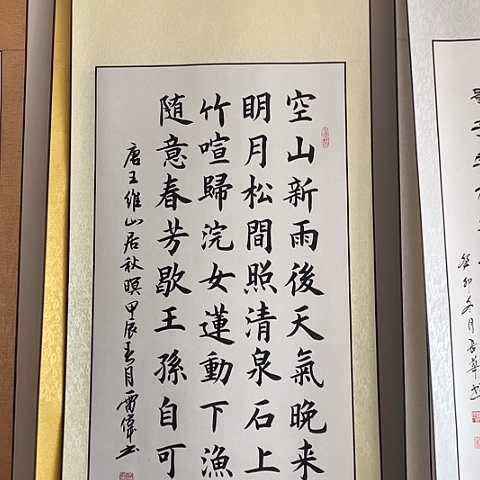 空山新雨後天氣晚来
明月松間照清泉石上
竹喧歸浣女蓮動下漁
随意春芳歇王孫自可
唐王維山居秋暝甲辰春月雷偉书
癸卯冬月